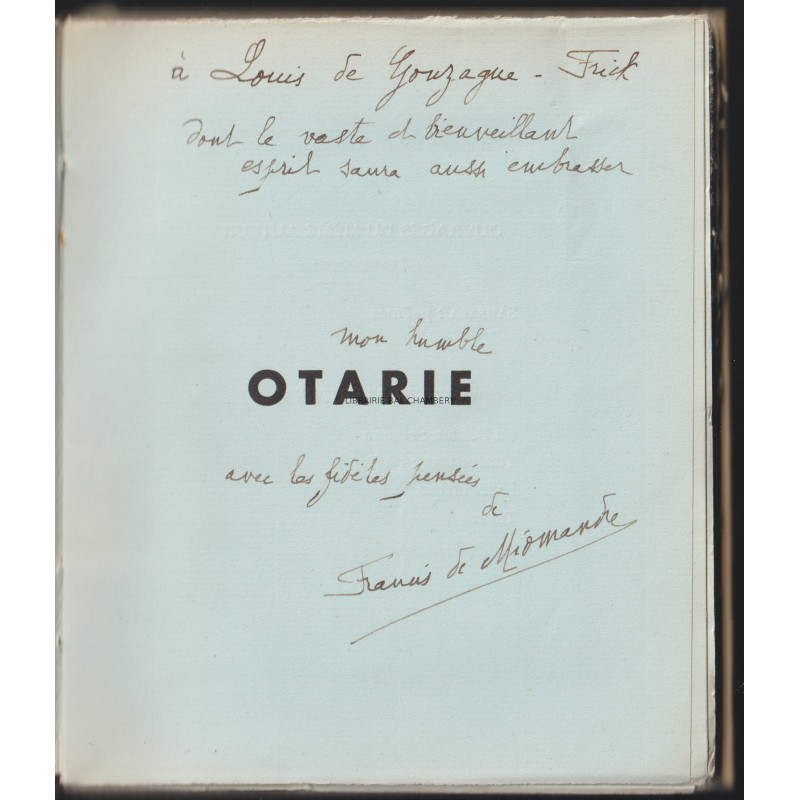 à Louis de Gonzague - Frick
dont le vaste et bienveillant
esprit saura aussi embrasser
mon humble
OTARIE
LIBRAIRIE BAL CHAMBERY
avec les fidèles pensées
de
Francis de Miomandre